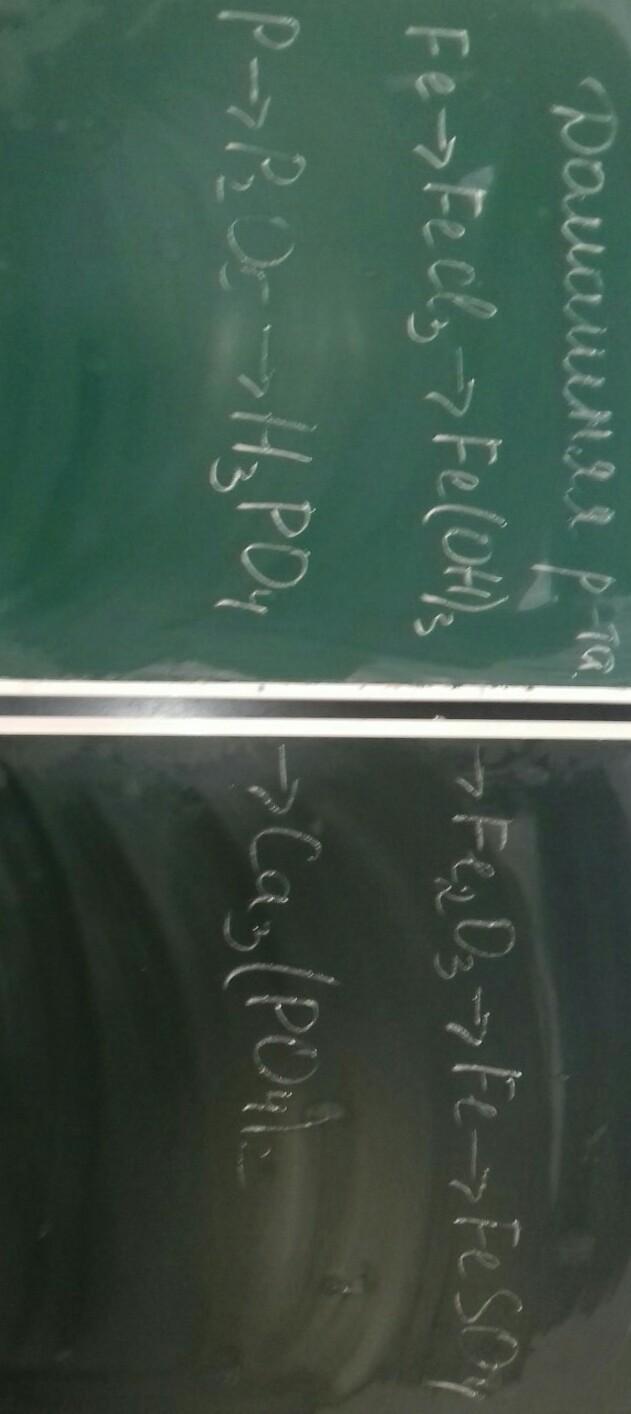 Домашняя р-та
Fe → FeCl₃ → Fe(OH)₃ → Fe₂O₃ → Fe → FeSO₄
P → P₂O₅ → H₃PO₄ → Ca₃(PO₄)₂